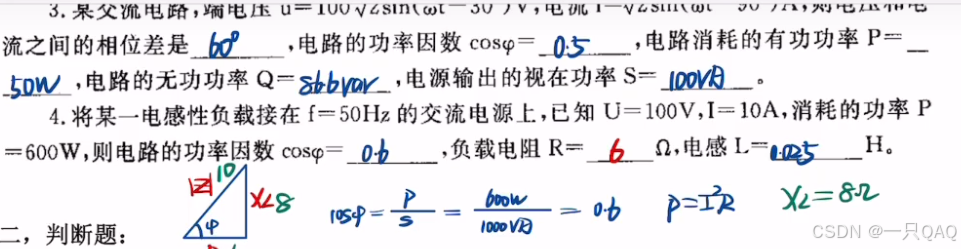 3. 某交流电路,端电压 u=100√2sin(ωt-30°)V,电流 i=√2sin(ωt-90°)A,则电压和电
流之间的相位差是 60° ,电路的功率因数 cosφ= 0.5 ,电路消耗的有功功率 P=
50W ,电路的无功功率 Q= 86.6var ,电源输出的视在功率 S= 100VA 。
4. 将某一电感性负载接在 f=50Hz 的交流电源上,已知 U=100V,I=10A,消耗的功率 P
=600W,则电路的功率因数 cosφ= 0.6 ,负载电阻 R= 6 Ω,电感 L= 0.025 H。
|Z| 10 XL8 φ
cosφ = P/S = 600W/1000VA = 0.6 P=I²R XL=8Ω
二、判断题:
CSDN @一只QAQ